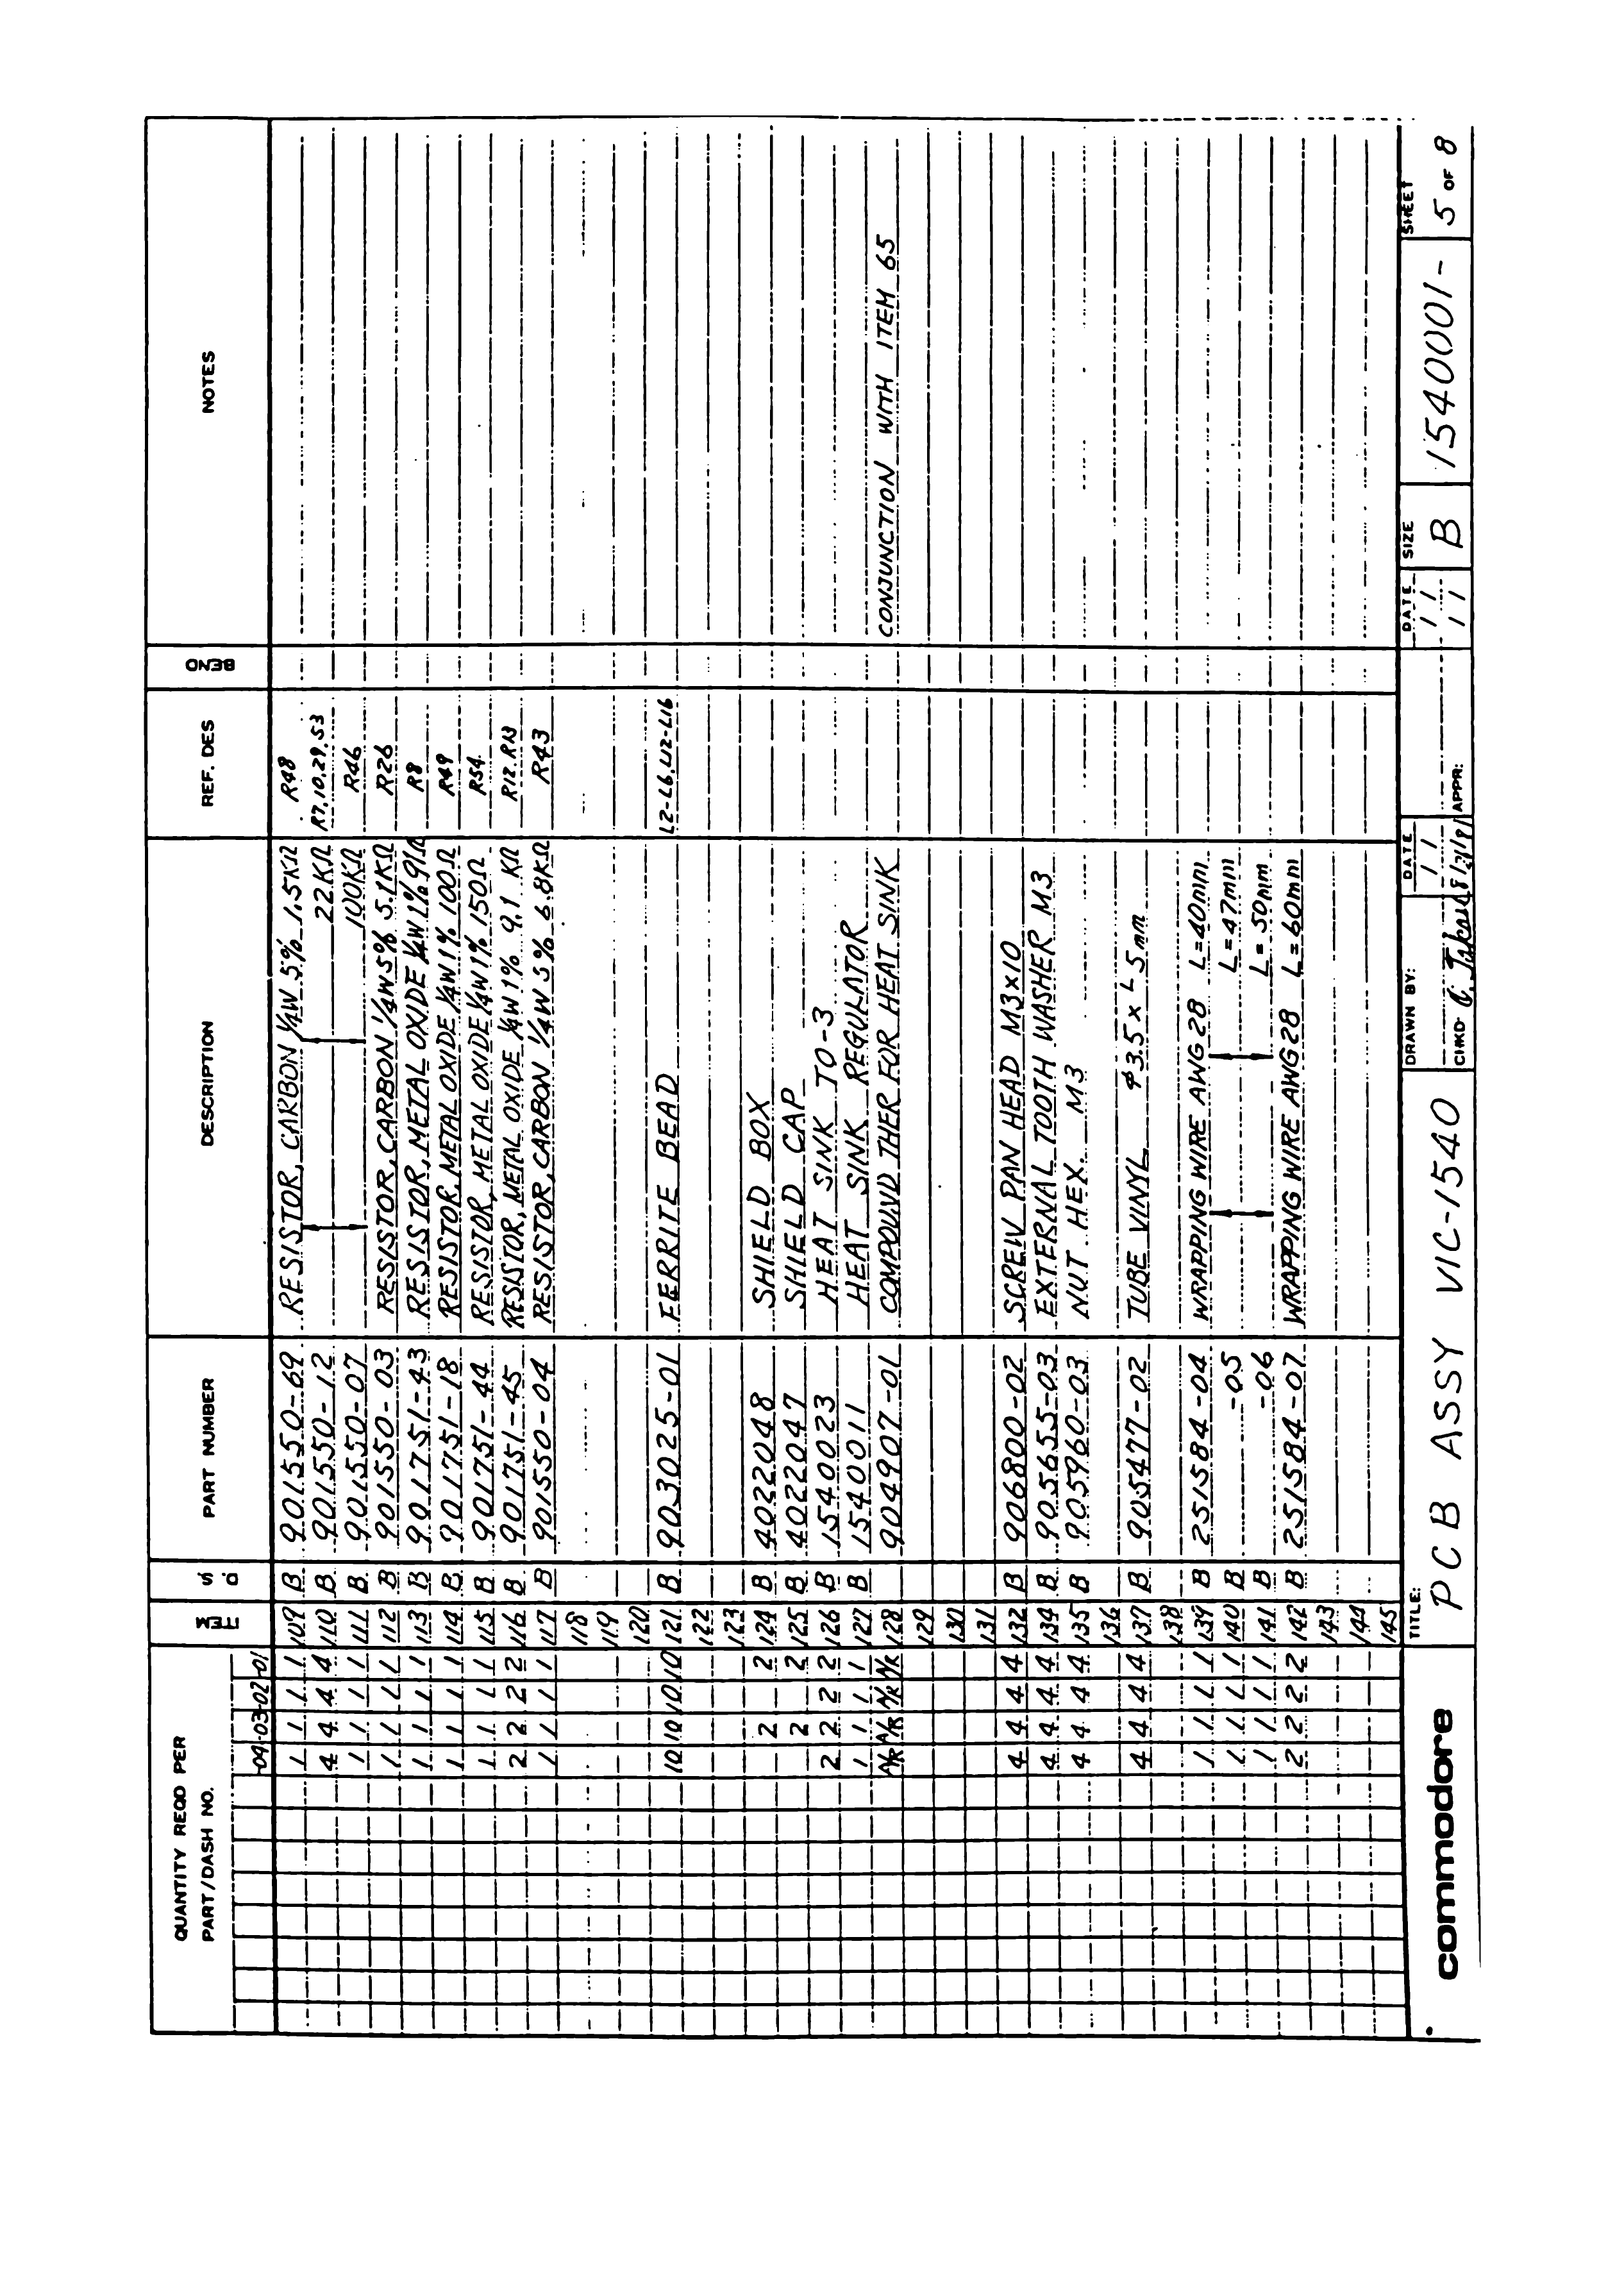 QUANTITY REQD PER PART/DASH NO. ITEM D.S. PART NUMBER DESCRIPTION REF. DES BEND NOTES
-04 -03 -02 -01
1 1 1 1 109 B 901550-69 RESISTOR, CARBON 1/4W 5% 1.5KΩ R48
4 4 4 4 110 B 901550-12 22KΩ R7,10,29,53
1 1 1 1 111 B 901550-07 100KΩ R46
1 1 1 1 112 B 901550-03 RESISTOR, CARBON 1/4W 5% 5.1KΩ R26
1 1 1 1 113 B 901751-43 RESISTOR, METAL OXIDE 1/4W 1% 91Ω R8
1 1 1 1 114 B 901751-18 RESISTOR, METAL OXIDE 1/4W 1% 100Ω R49
1 1 1 1 115 B 901751-44 RESISTOR, METAL OXIDE 1/4W 1% 150Ω R54
2 2 2 2 116 B 901751-45 RESISTOR, METAL OXIDE 1/4W 1% 9.1 KΩ R12,R13
1 1 1 1 117 B 901550-04 RESISTOR, CARBON 1/4W 5% 6.8KΩ R43
118
119
120
10 10 10 10 121 B 903025-01 FERRITE BEAD L2-L6,L12-L16
122
123
2 - 2 124 B 4022048 SHIELD BOX
2 2 125 B 4022047 SHIELD CAP
2 2 2 2 126 B 1540023 HEAT SINK TO-3
1 1 1 1 127 B 1540011 HEAT SINK REGULATOR
A/R A/R A/R A/R 128 904907-01 COMPOUND THER FOR HEAT SINK CONJUNCTION WITH ITEM 65
129
130
131
4 4 4 4 132 B 906800-02 SCREW PAN HEAD M3x10
4 4 4 4 134 B 905655-03 EXTERNAL TOOTH WASHER M3
4 4 4 4 135 B 905960-03 NUT HEX. M3
136
4 4 4 4 137 B 905477-02 TUBE VINYL φ3.5 x L5mm
138
1 1 1 1 139 B 251584-04 WRAPPING WIRE AWG28 L=40mm
1 1 1 1 140 B -05 L=47mm
1 1 1 1 141 B -06 L=50mm
2 2 2 2 142 B 251584-07 WRAPPING WIRE AWG28 L=60mm
143
144
145
commodore
TITLE: PCB ASSY VIC-1540
DRAWN BY: DATE / /
CHKD APPR:
DATE / / / /
SIZE B
1540001-
SHEET 5 OF 8